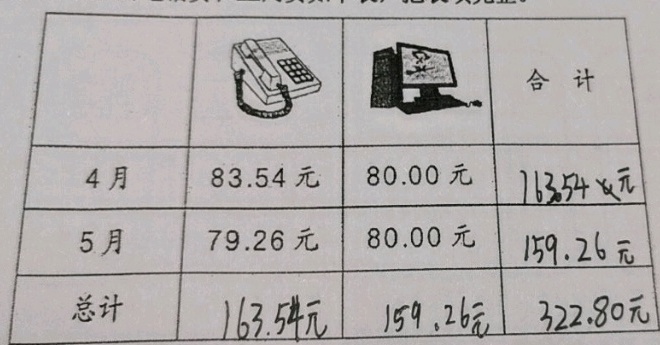 合计
4月 83.54元 80.00元 163.54元
5月 79.26元 80.00元 159.26元
总计 163.54元 159.26元 322.80元